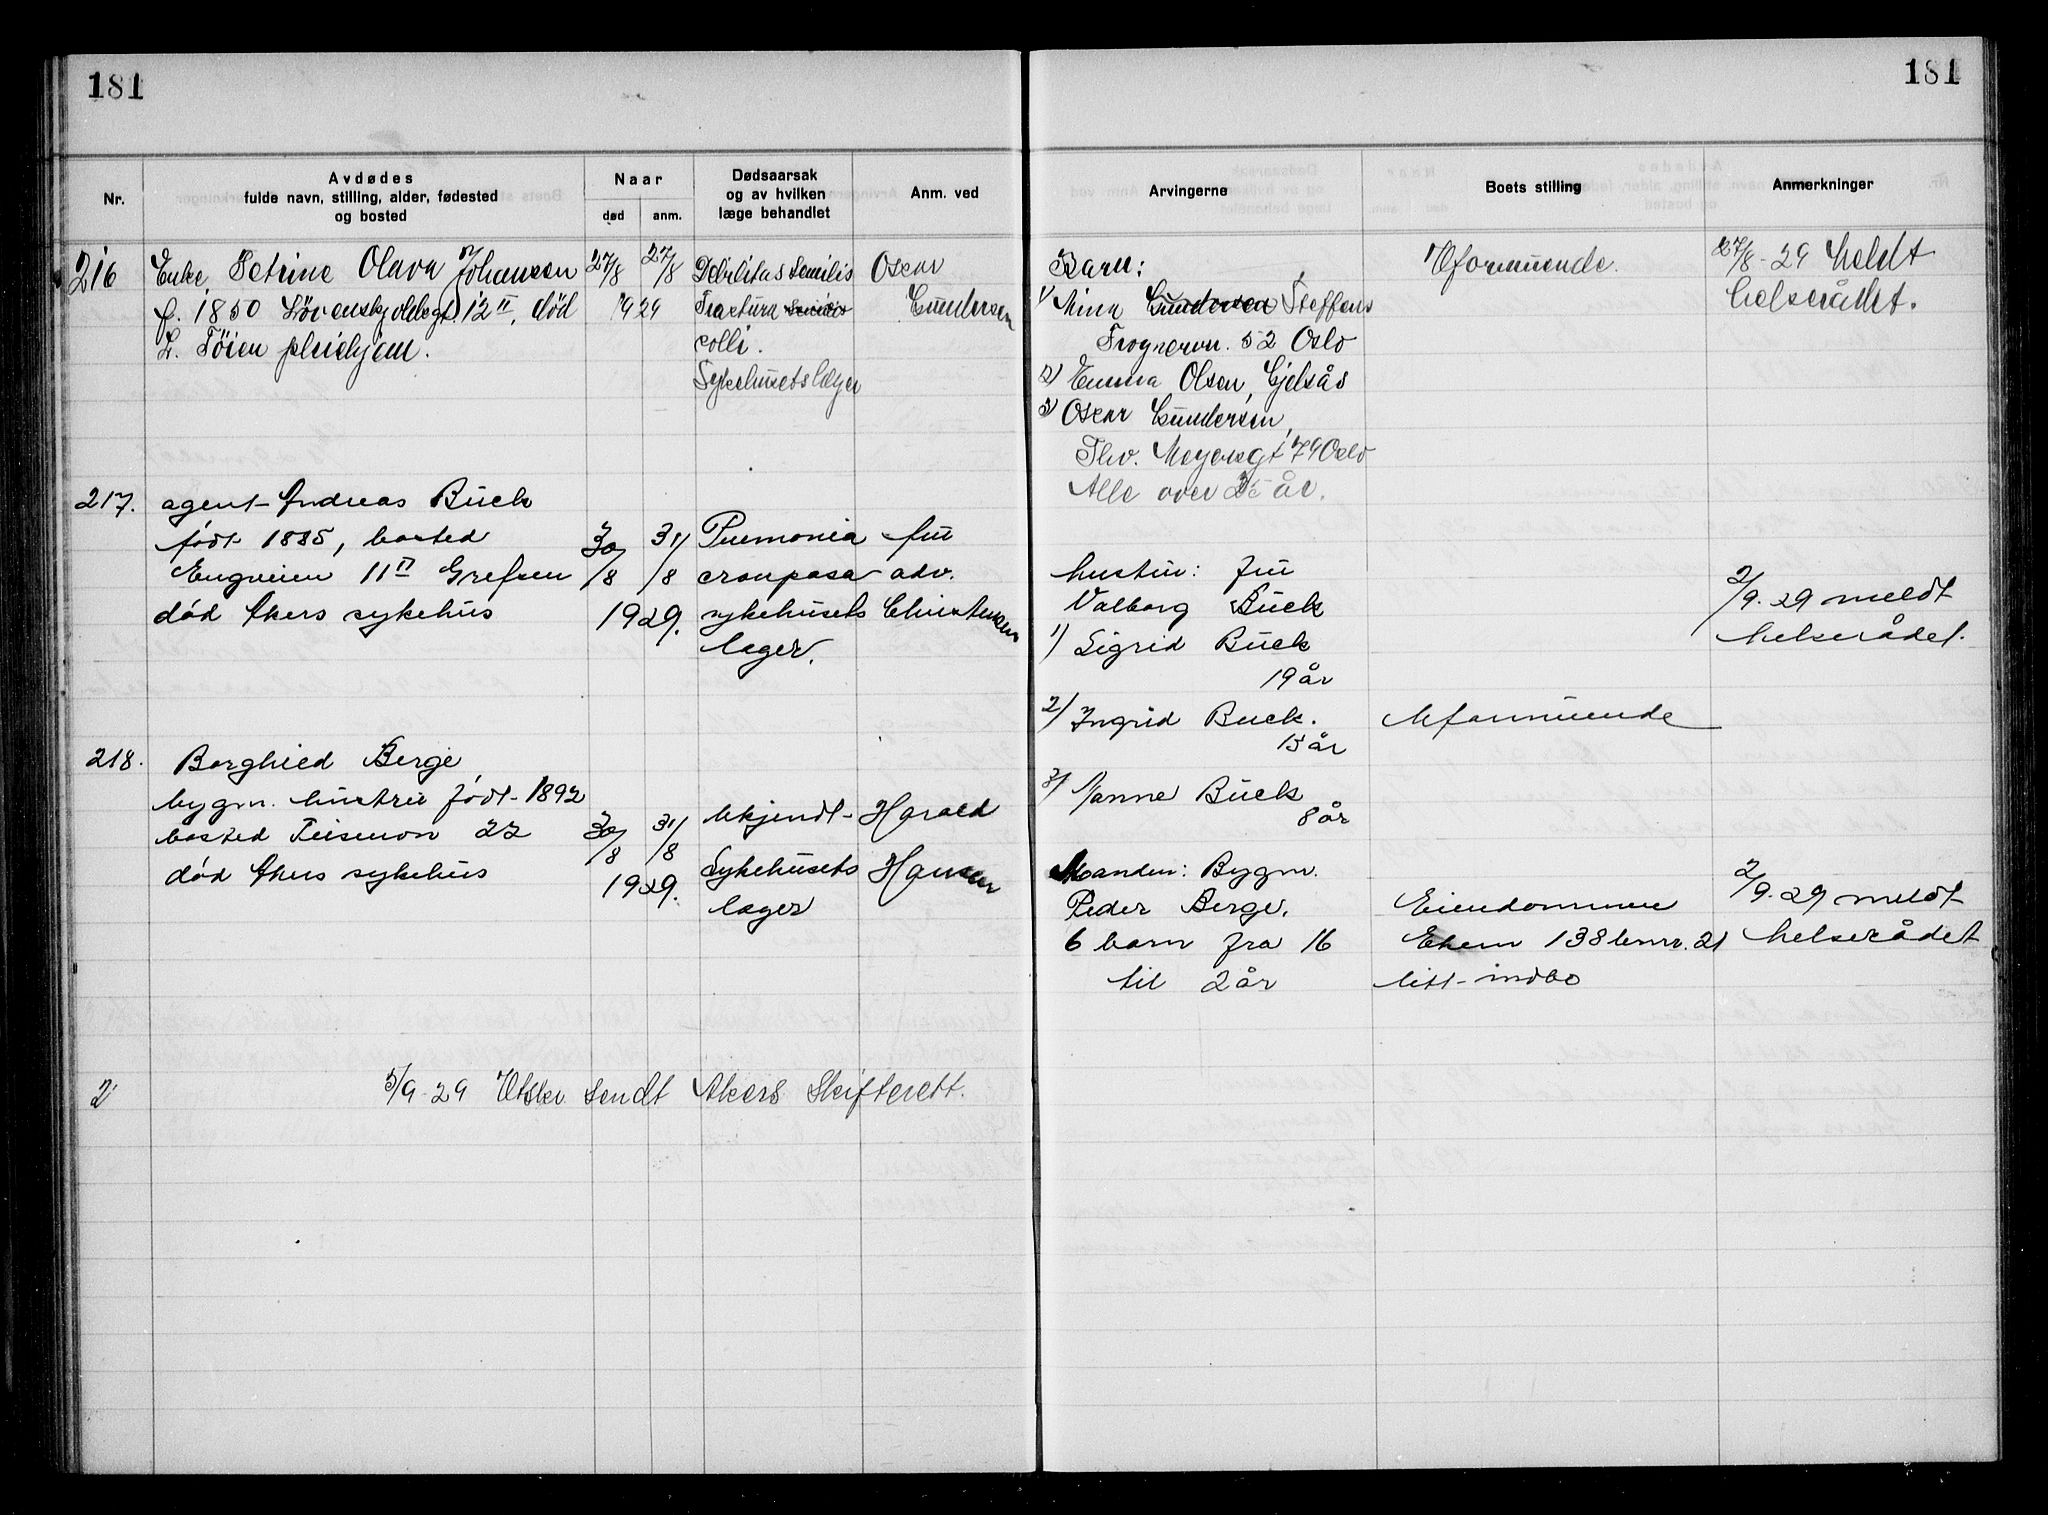 181
181
Nr.
Avdødes
fulde navn, stilling, alder, fødested
og bosted
Naar
død
anm.
Dødsaarsak
og av hvilken
læge behandlet
Anm. ved
Arvingerne
Boets stilling
Anmerkninger
216
Enke, Petrine Olava Johansen
f. 1850 Løvenskjoldsgt. 12 II, død
L. Tøien pleiehjem.
27/8
27/8
1929
Debilitas senilis
Fractura senilis
colli.
Sykehusets læger
Oscar
Gundersen
Barn:
1) Mina Gundersen Steffens
Frognervn. 52 Oslo
2) Emma Olsen, Kjelsås
3) Oscar Gundersen,
Thv. Meyersgt 79 Oslo
Alle over 25 år.
Uformuende.
27/8-29 Meldt
helserådet.
217.
agent Andreas Buck
født 1885, bosted
Engveien 11 II Grefsen
død Akers sykehus
30/8
31/8
1929.
Pnemonia
crouposa
sykehusets
læger.
fru
adv.
Christensen
hustru: fru
Valborg Buck
1) Sigrid Buck
19 år
2) Ingrid Buck.
15 år
3) Nanne Buck
8 år
Uformuende
2/9. 29 meldt
helserådet.
218.
Borghild Berge,
bygm. hustru født 1892
bosted Teisenvn 22
død Akers sykehus
30/8
31/8
1929.
Ukjendt
Sykehusets
læger
Harald
Hansen
Manden: Bygm.
Peder Berge.
6 barn fra 16
til 2 år
Eiendommen
Ekern 138 bnr. 21
litt indbo
2/9. 29 meldt
helserådet
2
5/9-29 Utskr. sendt Akers Skifterett.